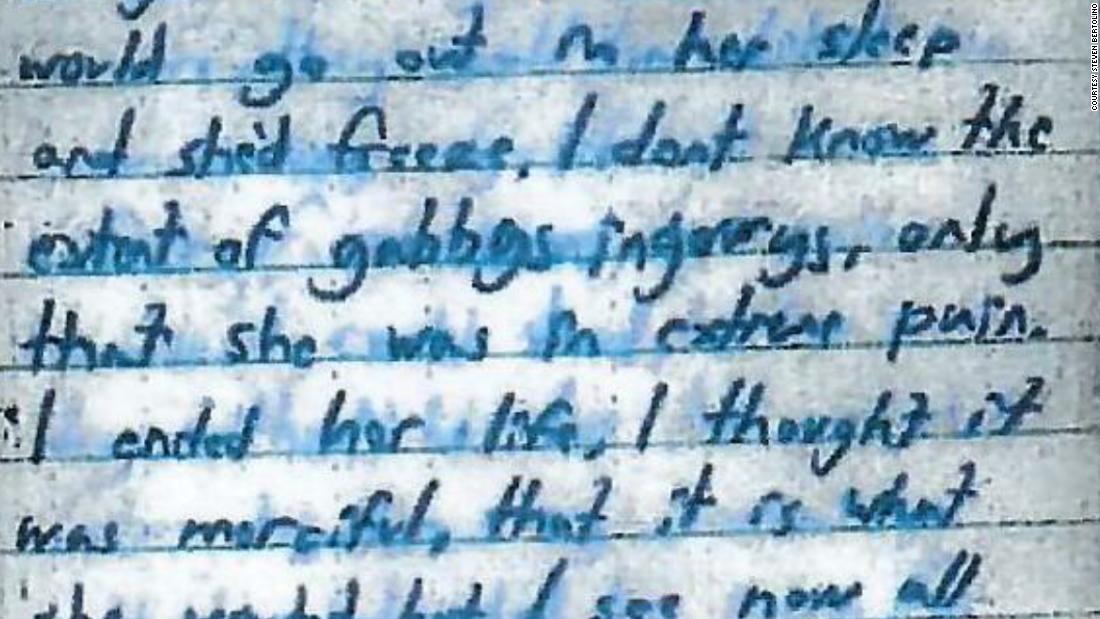 would go out in her sleep
and she'd freeze, I dont know the
extent of gabbys ingereys, only
that she was in extreme pain.
I ended her life, I thought it
was merciful, that it is what
she wanted but I see now all
COURTESY STEVEN BERTOLINO